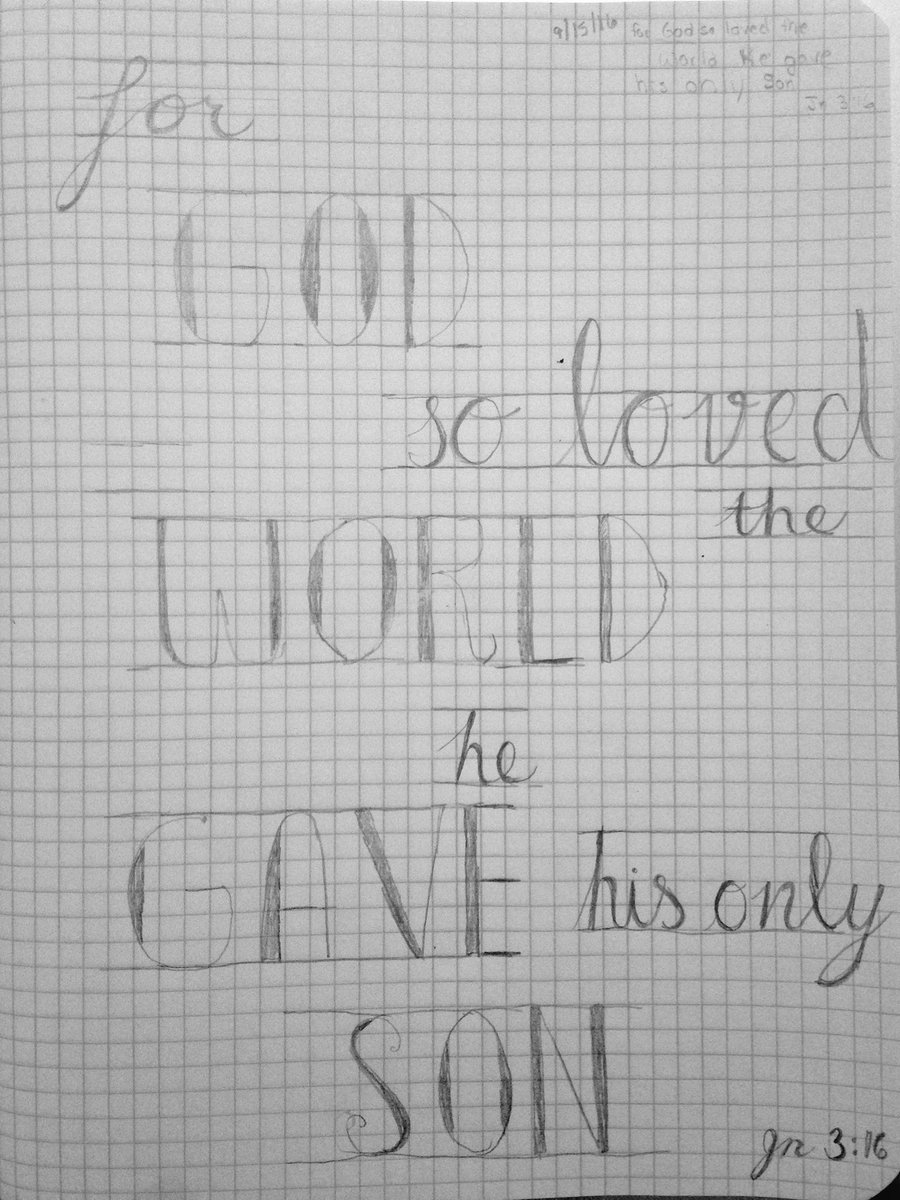 9/15/16 for God so loved the
World He gave
his only Son
Jn 3:16
for
GOD
so loved
the
WORLD
he
GAVE his only
SON
Jn 3:16